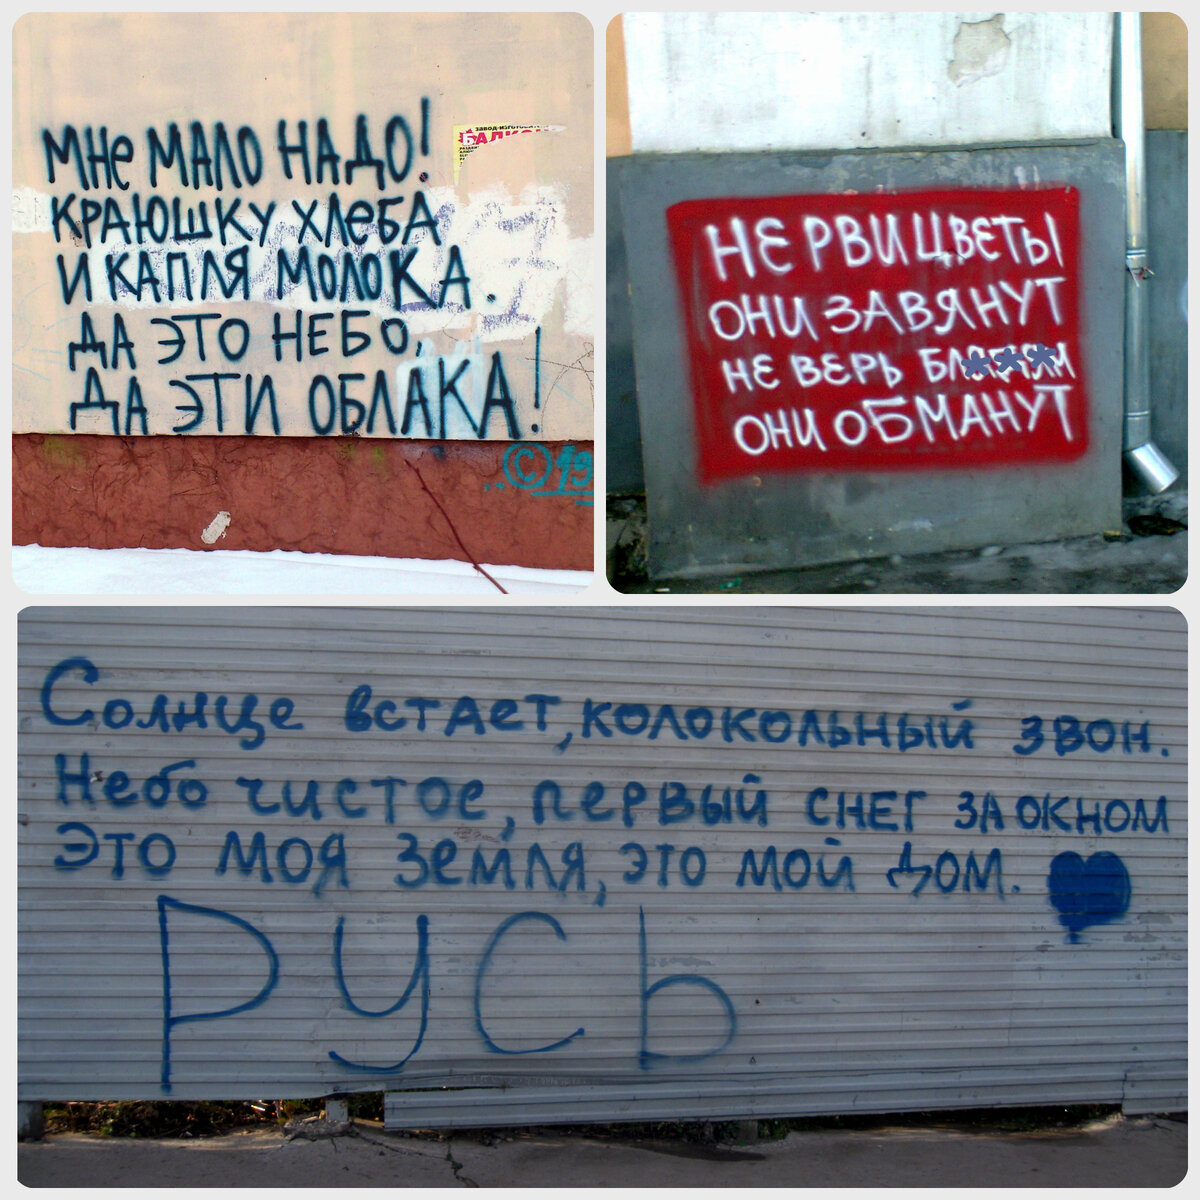 Мне МАЛО НАДО!
КРАЮШКУ ХЛеБА
И КАПЛЯ МОЛОКА.
ДА ЭТО НЕБО,
ДА ЭТИ ОБЛАКА!
ЗАВОД-ИЗГОТОВИТЕЛЬ
БАЛКОН
©
НЕ РВИ ЦВЕТЫ
ОНИ ЗАВЯНУТ
НЕ ВЕРЬ БЛ***М
ОНИ ОБМАНУТ
Солнце встает, колокольный звон.
Небо чистое, первый снег за окном
Это моя земля, это мой дом.
РУСЬ